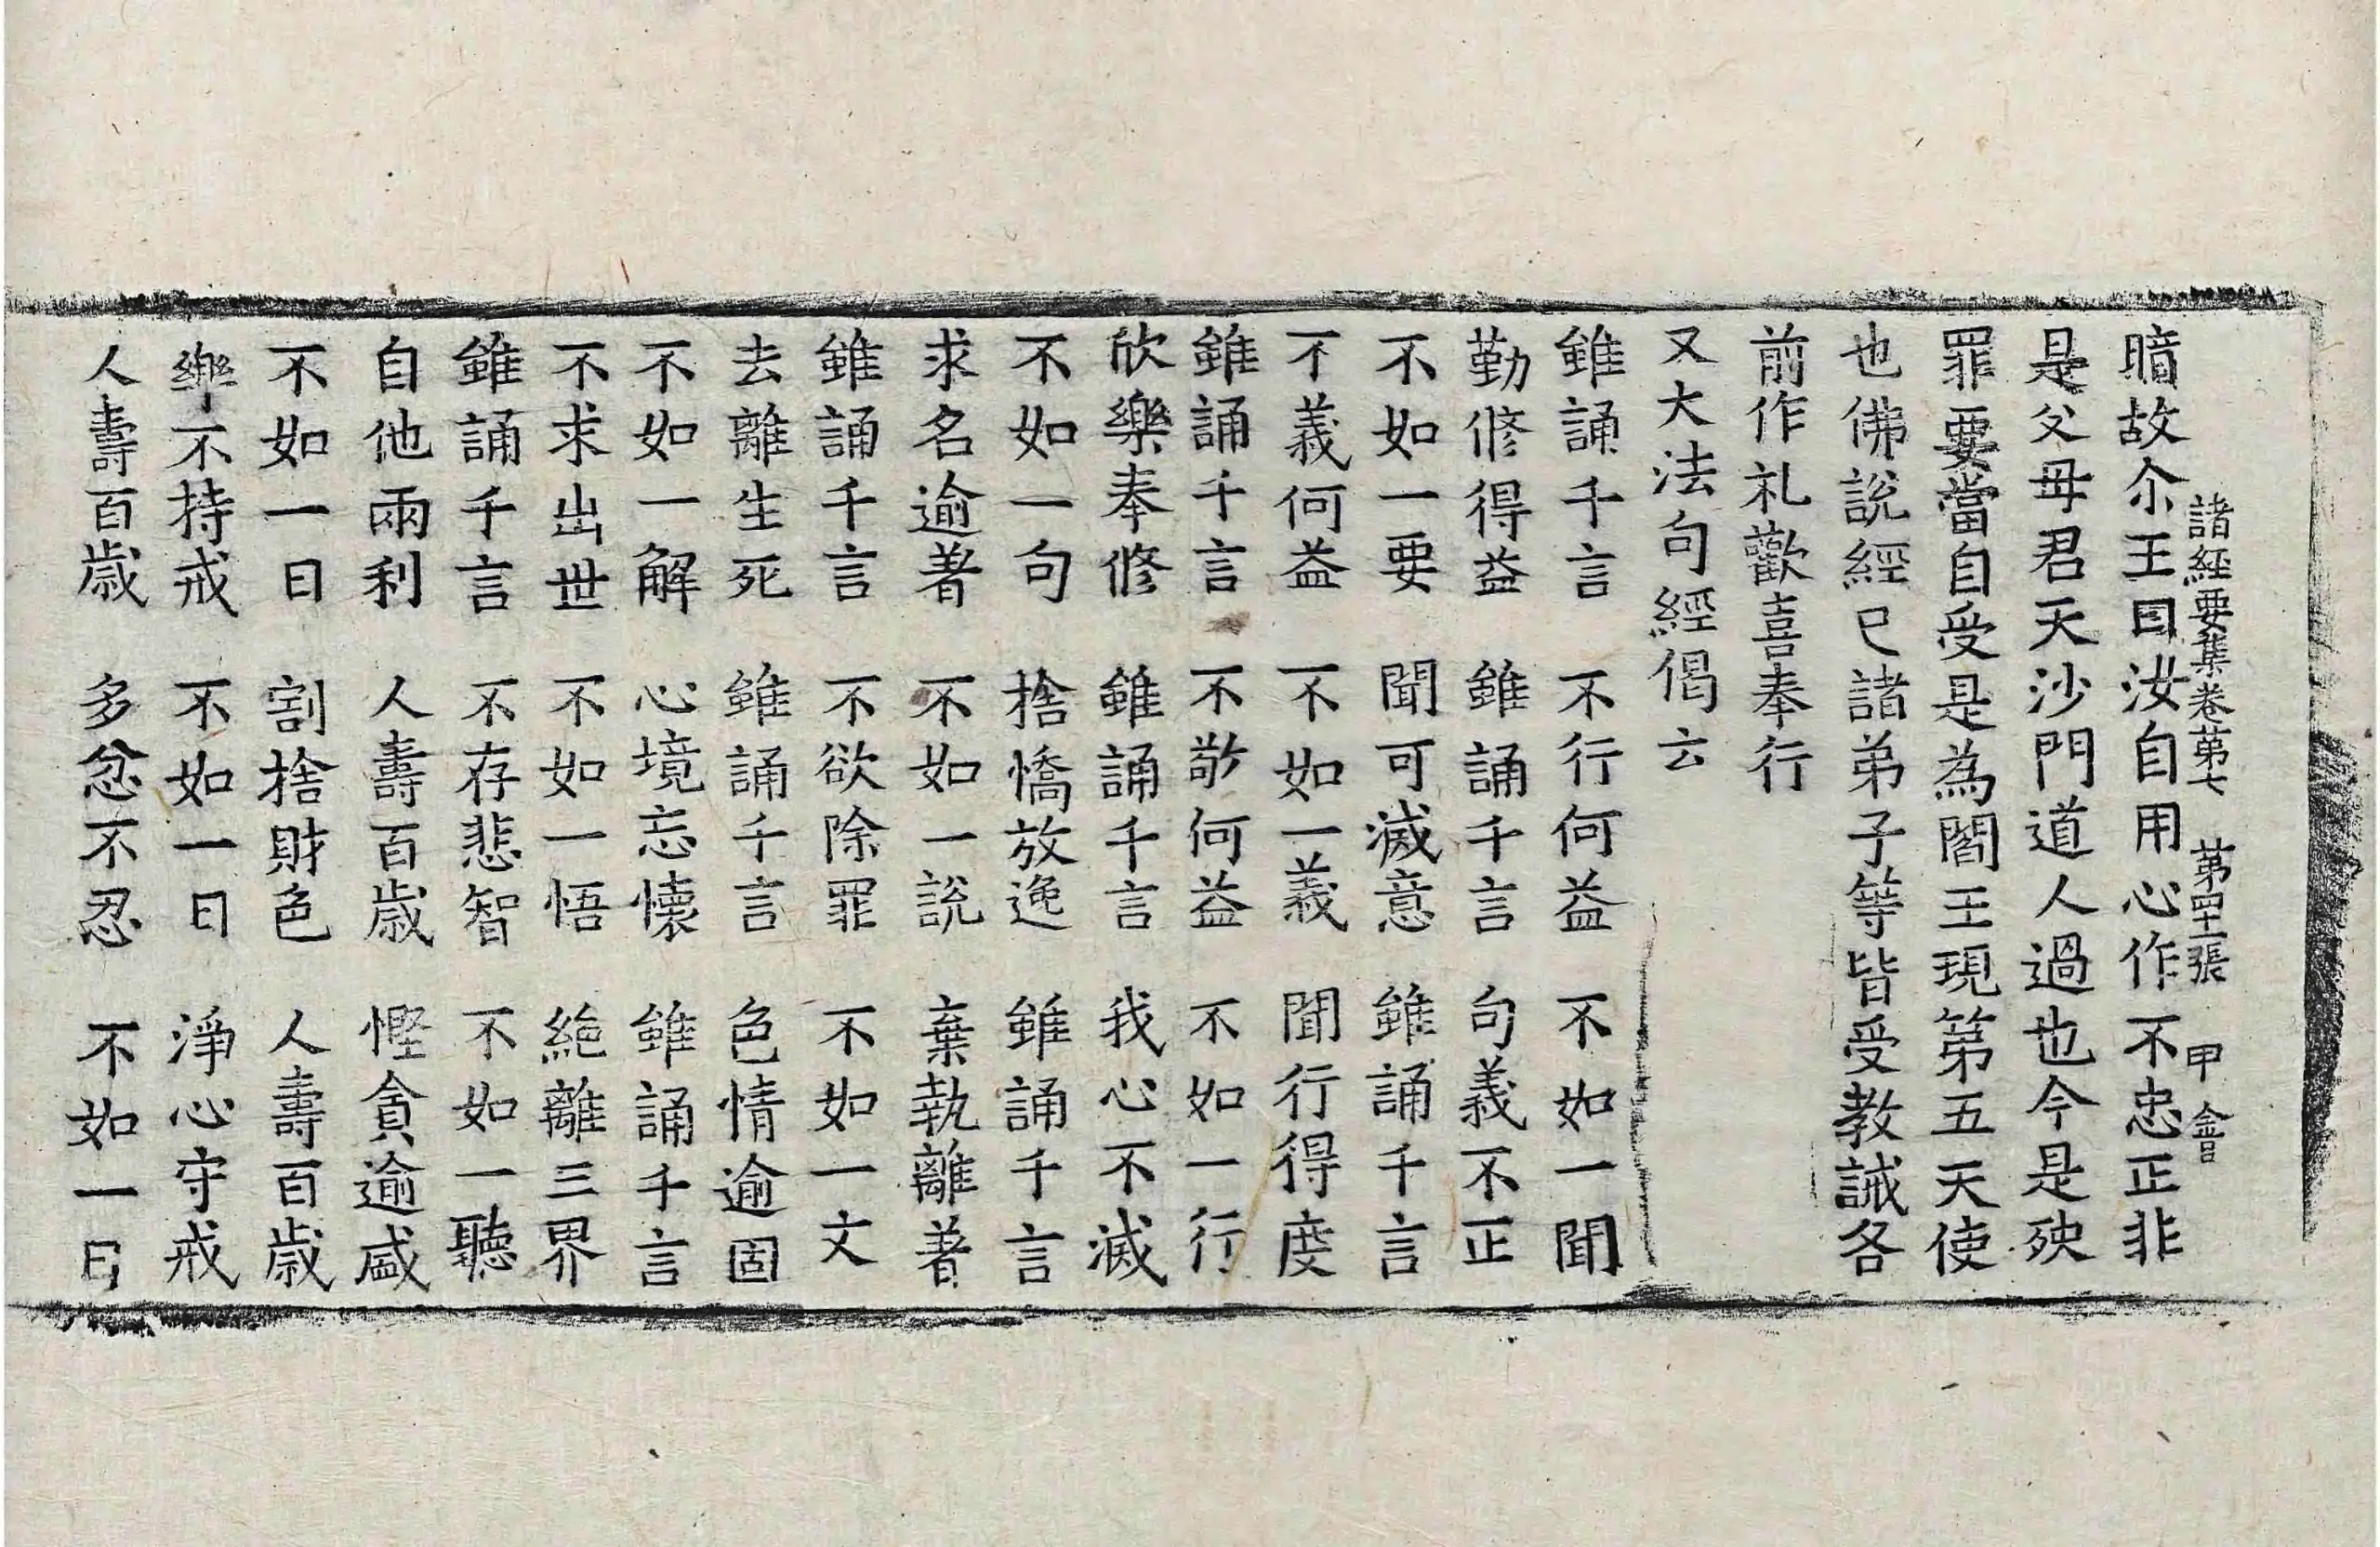 諸經要集卷第七 第四十二張 甲 會
暗故尒王曰汝自用心作不忠正非
是父母君天沙門道人過也今是殃
罪要當自受是為閻王現第五天使
也佛說經已諸弟子等皆受教誡各
前作礼歡喜奉行
又大法句經偈云
雖誦千言 不行何益 不如一聞
勤修得益 雖誦千言 句義不正
不如一要 聞可滅意 雖誦千言
不義何益 不如一義 聞行得度
雖誦千言 不敬何益 不如一行
欣樂奉修 雖誦千言 我心不滅
不如一句 捨憍放逸 雖誦千言
求名逾著 不如一說 棄執離著
雖誦千言 不欲除罪 不如一文
去離生死 雖誦千言 色情逾固
不如一解 心境忘懷 雖誦千言
不求出世 不如一悟 絕離三界
雖誦千言 不存悲智 不如一聽
自他兩利 人壽百歲 慳貪逾盛
不如一日 割捨財色 人壽百歲
樂不持戒 不如一日 淨心守戒
人壽百歲 多忿不忍 不如一日